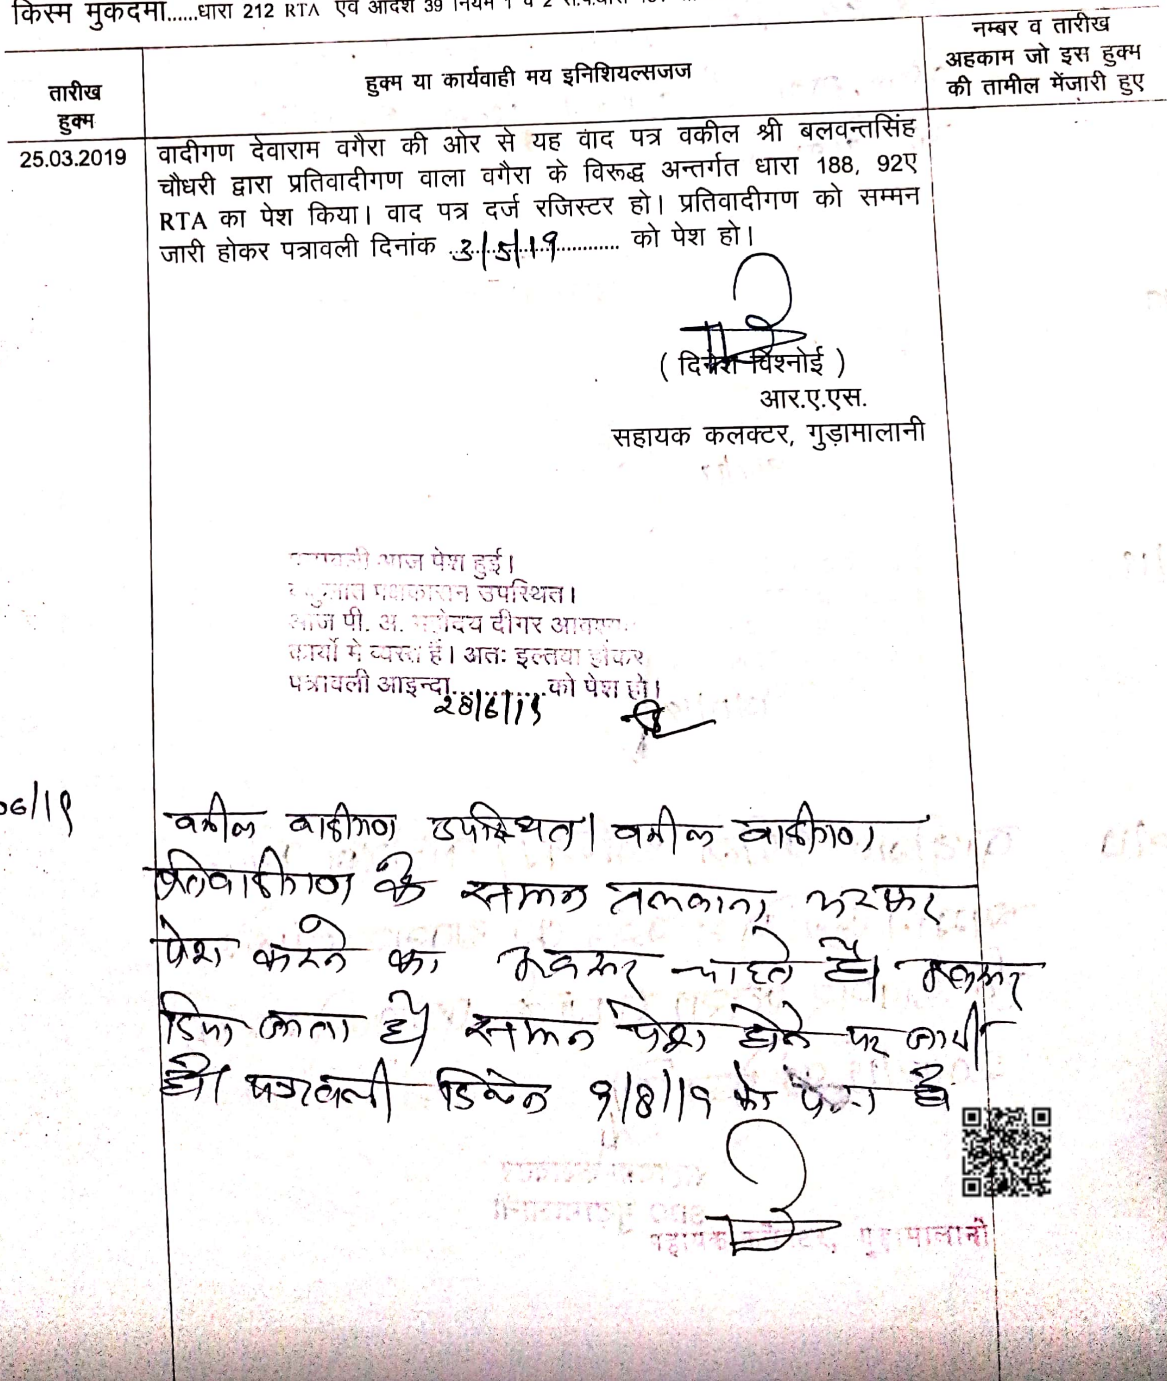 किस्म मुकदमा......धारा 212 RTA एवं आदेश 39 नियम 1 व 2
तारीख हुक्म
हुक्म या कार्यवाही मय इनिशियल्सजज
नम्बर व तारीख अहकाम जो इस हुक्म की तामील मेंजारी हुए
25.03.2019
वादीगण देवाराम वगैरा की ओर से यह वाद पत्र वकील श्री बलवन्तसिंह
चौधरी द्वारा प्रतिवादीगण वाला वगैरा के विरूद्ध अन्तर्गत धारा 188, 92ए
RTA का पेश किया। वाद पत्र दर्ज रजिस्टर हो। प्रतिवादीगण को सम्मन
जारी होकर पत्रावली दिनांक 3/5/19 को पेश हो।
( दिनेश विश्नोई )
आर.ए.एस.
सहायक कलक्टर, गुड़ामालानी
आज पेश हुई।
उपस्थित।
आज पी. अ. महोदय दीगर
कार्यो मे व्यस्त हैं। अतः इल्तवा होकर
पत्रावली आइन्दा............को पेश हो।
28/6/19
06/19
वकील वादीगण उपस्थित। वकील वादीगण
प्रतिवादीगण के सम्मन तलवाना भरकर
पेश करने का अवसर चाहते है। अवसर
दिया जाता है। सम्मन पेश होने पर जारी
हो। पत्रावली दिनांक 9/8/19 को पेश हो
सहायक कलक्टर, गुड़ामालानी